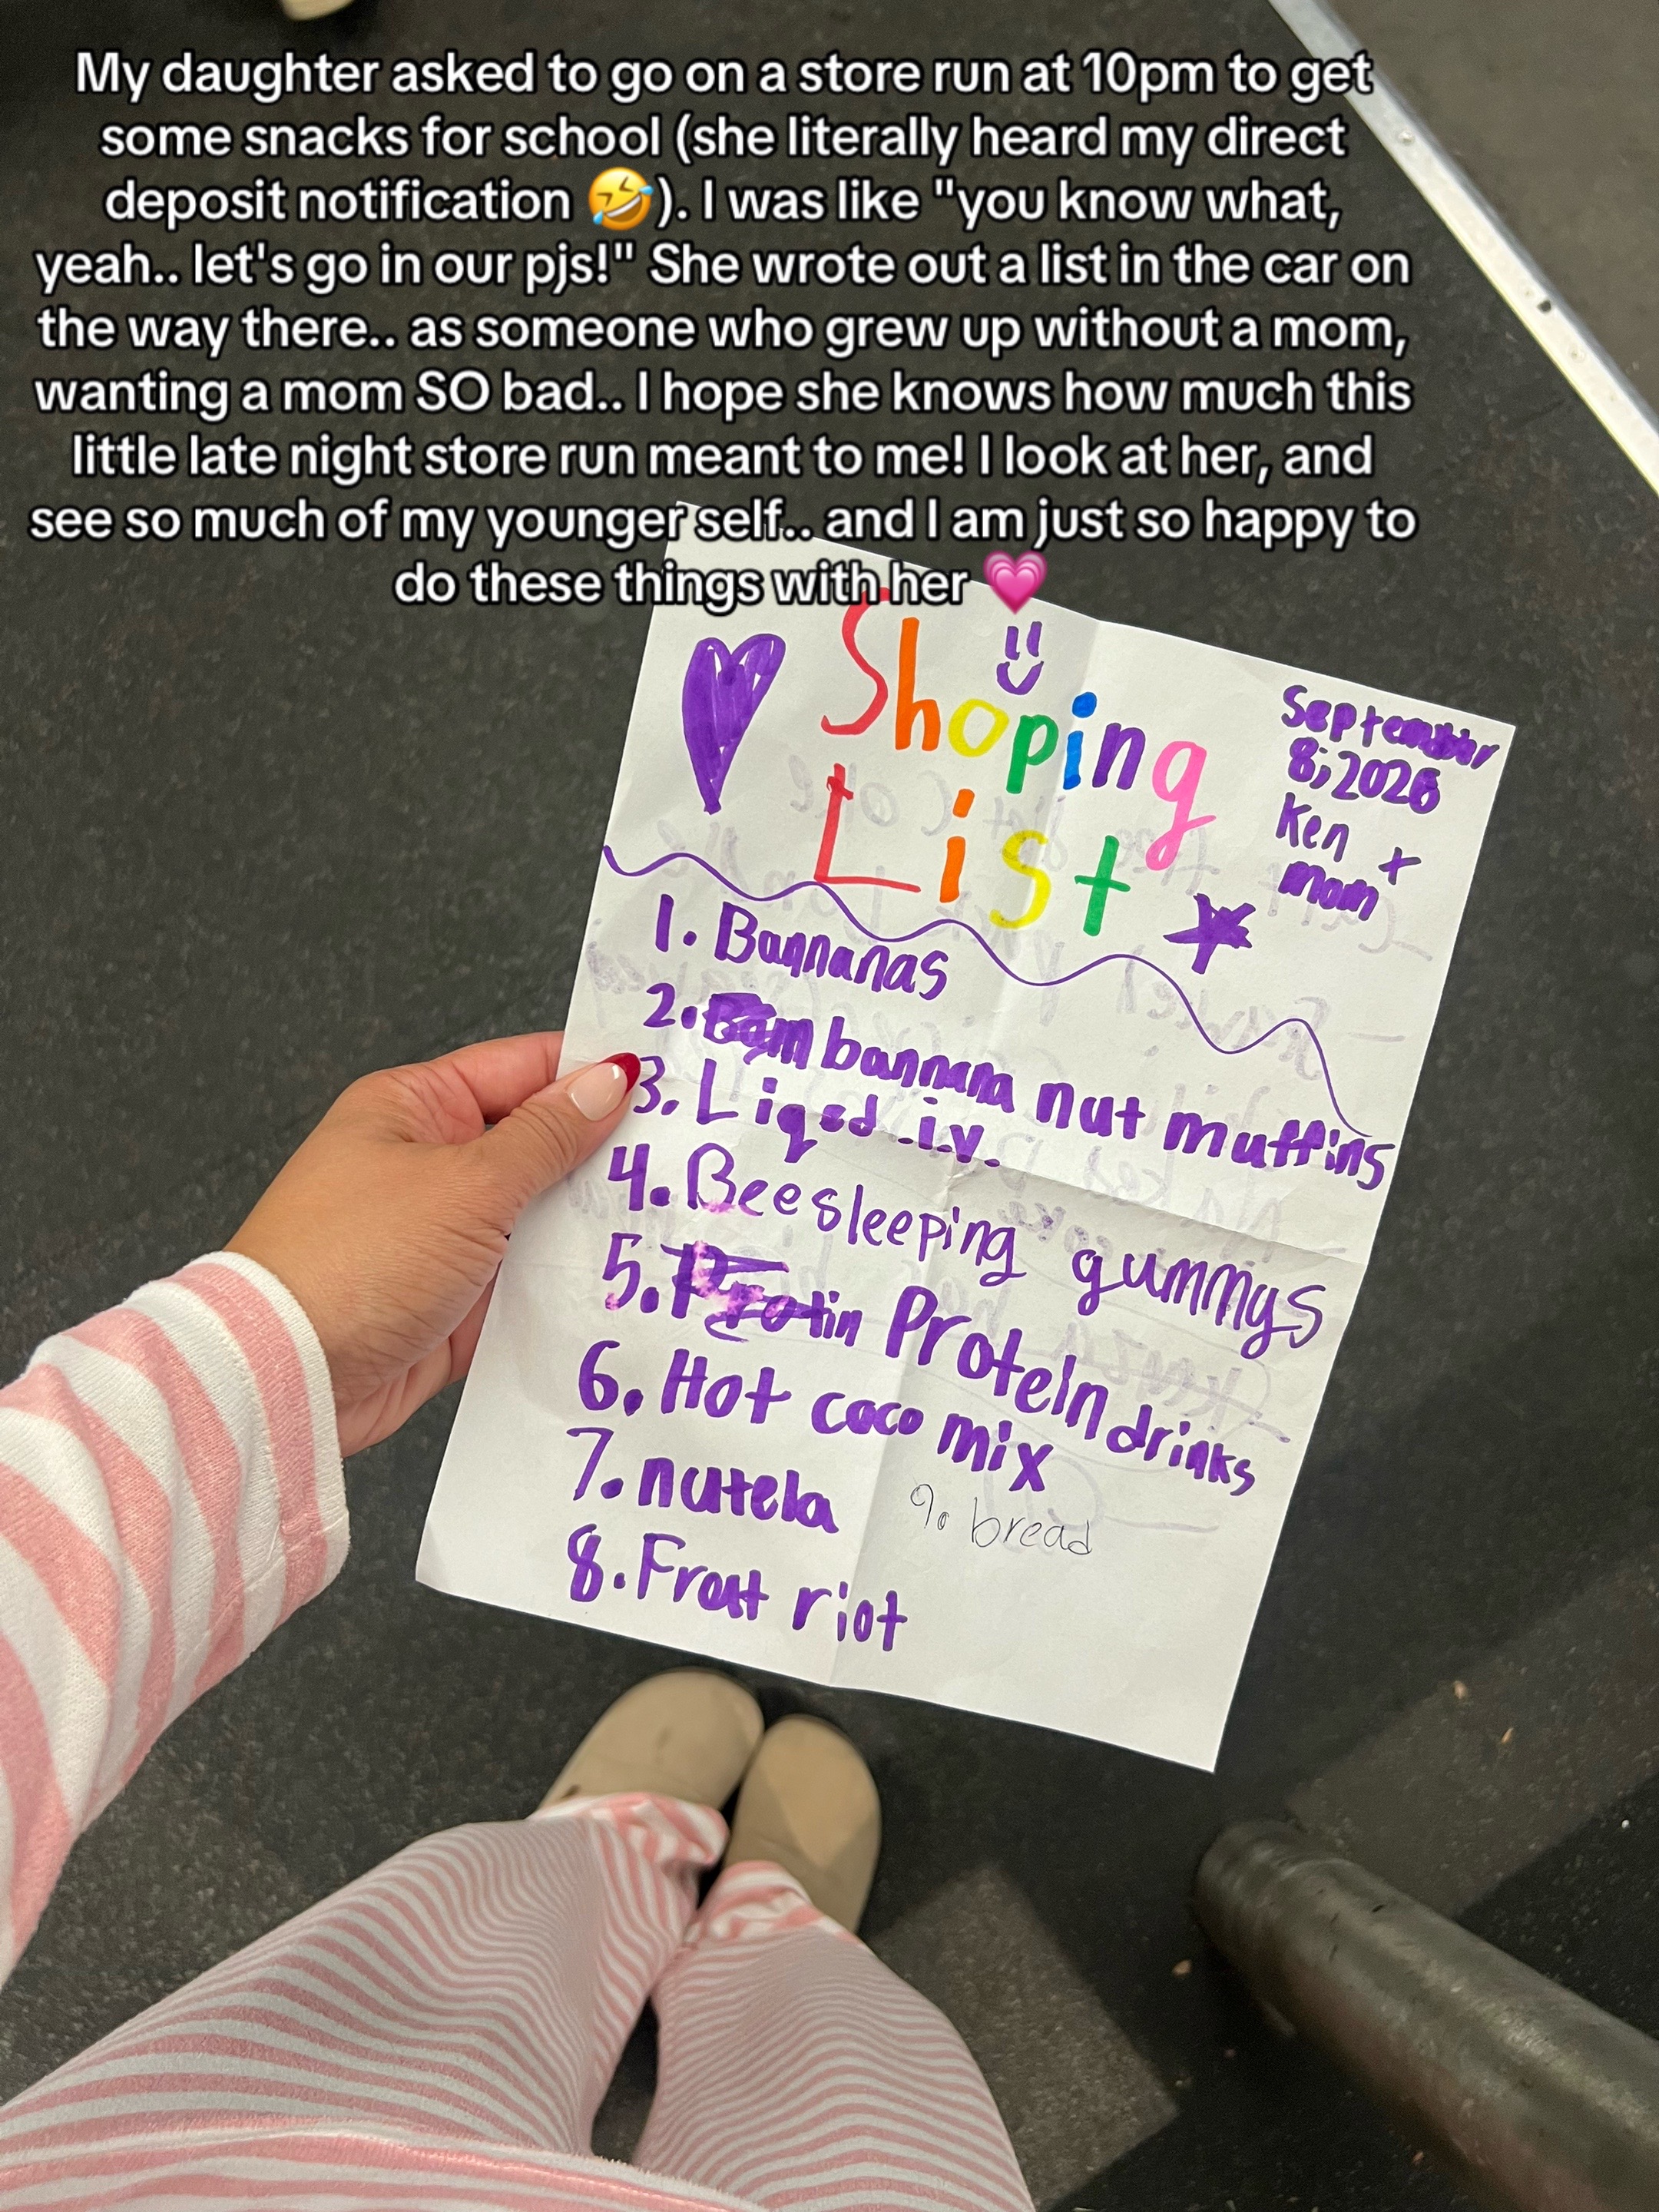 My daughter asked to go on a store run at 10pm to get
some snacks for school (she literally heard my direct
deposit notification 🤣). I was like "you know what,
yeah.. let's go in our pjs!" She wrote out a list in the car on
the way there.. as someone who grew up without a mom,
wanting a mom SO bad.. I hope she knows how much this
little late night store run meant to me! I look at her, and
see so much of my younger self.. and I am just so happy to
do these things with her 💗
Shoping
List
September
8, 2026
Ken +
mom
1. Bannanas
2. bannana nut muffins
3. Liqed i.v.
4. Bee sleeping gummys
5. Protin Protein drinks
6. Hot coco mix
7. nutela
8. Frott riot
9. bread